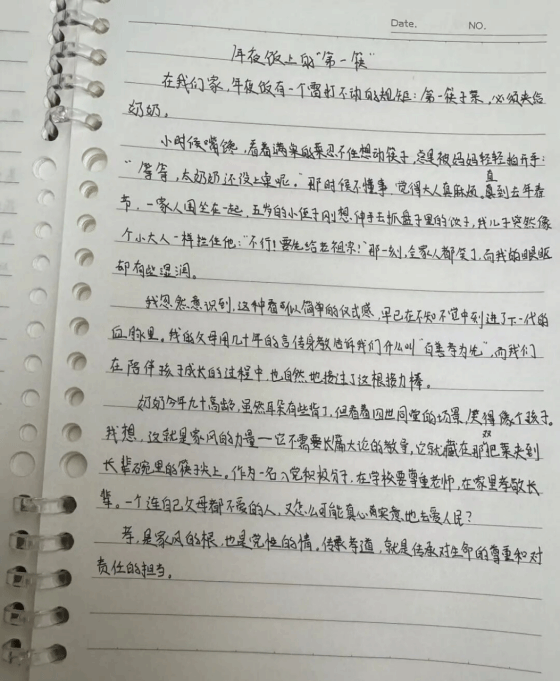 Date. NO.
年夜饭上的“第一筷”
在我们家,年夜饭有一个雷打不动的规矩:第一筷子菜,必须夹给
奶奶。
小时候嘴馋,看着满桌的菜忍不住想动筷子,总是被妈妈轻轻拍开手:
“等等,太奶奶还没上桌呢。”那时候不懂事,觉得大人真麻烦,直到去年春
节,一家人围坐在一起,五岁的小侄子刚想伸手去抓盘子里的饺子,我儿子突然像
个小大人一样拦住他:“不行!要先给老祖宗!”那一刻,全家人都笑了,而我的眼眶
却有些湿润。
我忽然意识到,这种看似简单的仪式感,早已在不知不觉中刻进了下一代的
血脉里。我的父母用几十年的言传身教告诉我们什么叫“百善孝为先”,而我们
在陪伴孩子成长的过程中,也自然地接过了这根接力棒。
奶奶今年九十高龄,虽然耳朵有些背了,但看着四世同堂的场景,笑得像个孩子。
我想,这就是家风的力量—它不需要长篇大论的教导,它就藏在那双把菜夹到
长辈碗里的筷子尖上。作为一名入党积极分子,在学校要尊重老师,在家里孝敬长
辈。一个连自己父母都不爱的人,又怎么可能真心实意地去爱人民?
孝,是家风的根,也是党性的情。传承孝道,就是传承对生命的尊重和对
责任的担当。